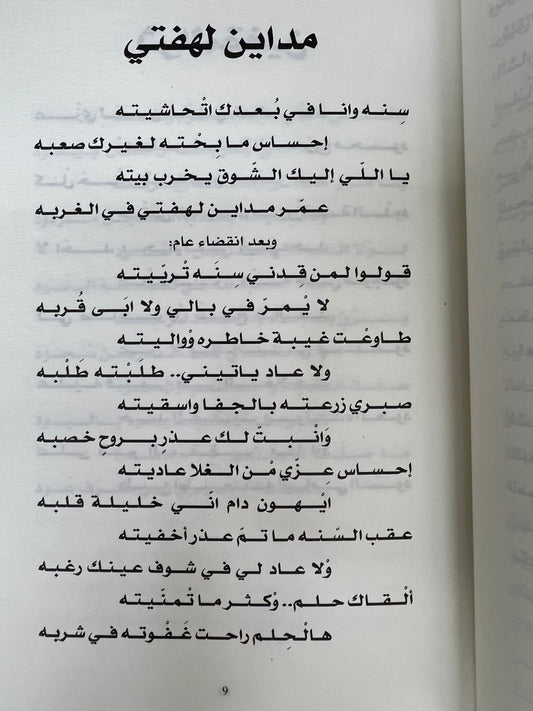 مداين لهفتي
سِنه وانا في بُعدك اتْحاشيته
إحساس ما بِحْته لغيرك صعبه
يا اللّي إليك الشّوق يخرب بيته
عمّر مداين لهفتي في الغربه
وبعد انقضاء عام:
قولوا لمن قِدني سِنَه تْريّيته
لا يْمرّ في بالي ولا ابى قُربه
طاوعْت غيبة خاطره وْواليته
ولا عاد ياتيني.. طلَبْته طَلْبه
صبري زرعته بالجفا واسقيته
وَانْبتّ لك عذرٍ بروحٍ خصبه
إحساس عِزّي مْن الغلا عاديته
ايْهون دام انّي خليلة قلبه
عقب السّنه ما تمّ عذر أخفيته
وْلا عاد لي في شوف عينك رغبه
ألْقاك حلم.. وْكثر ما تْمنّيته
هالْحِلم راحت غَفْوته في شربه
9